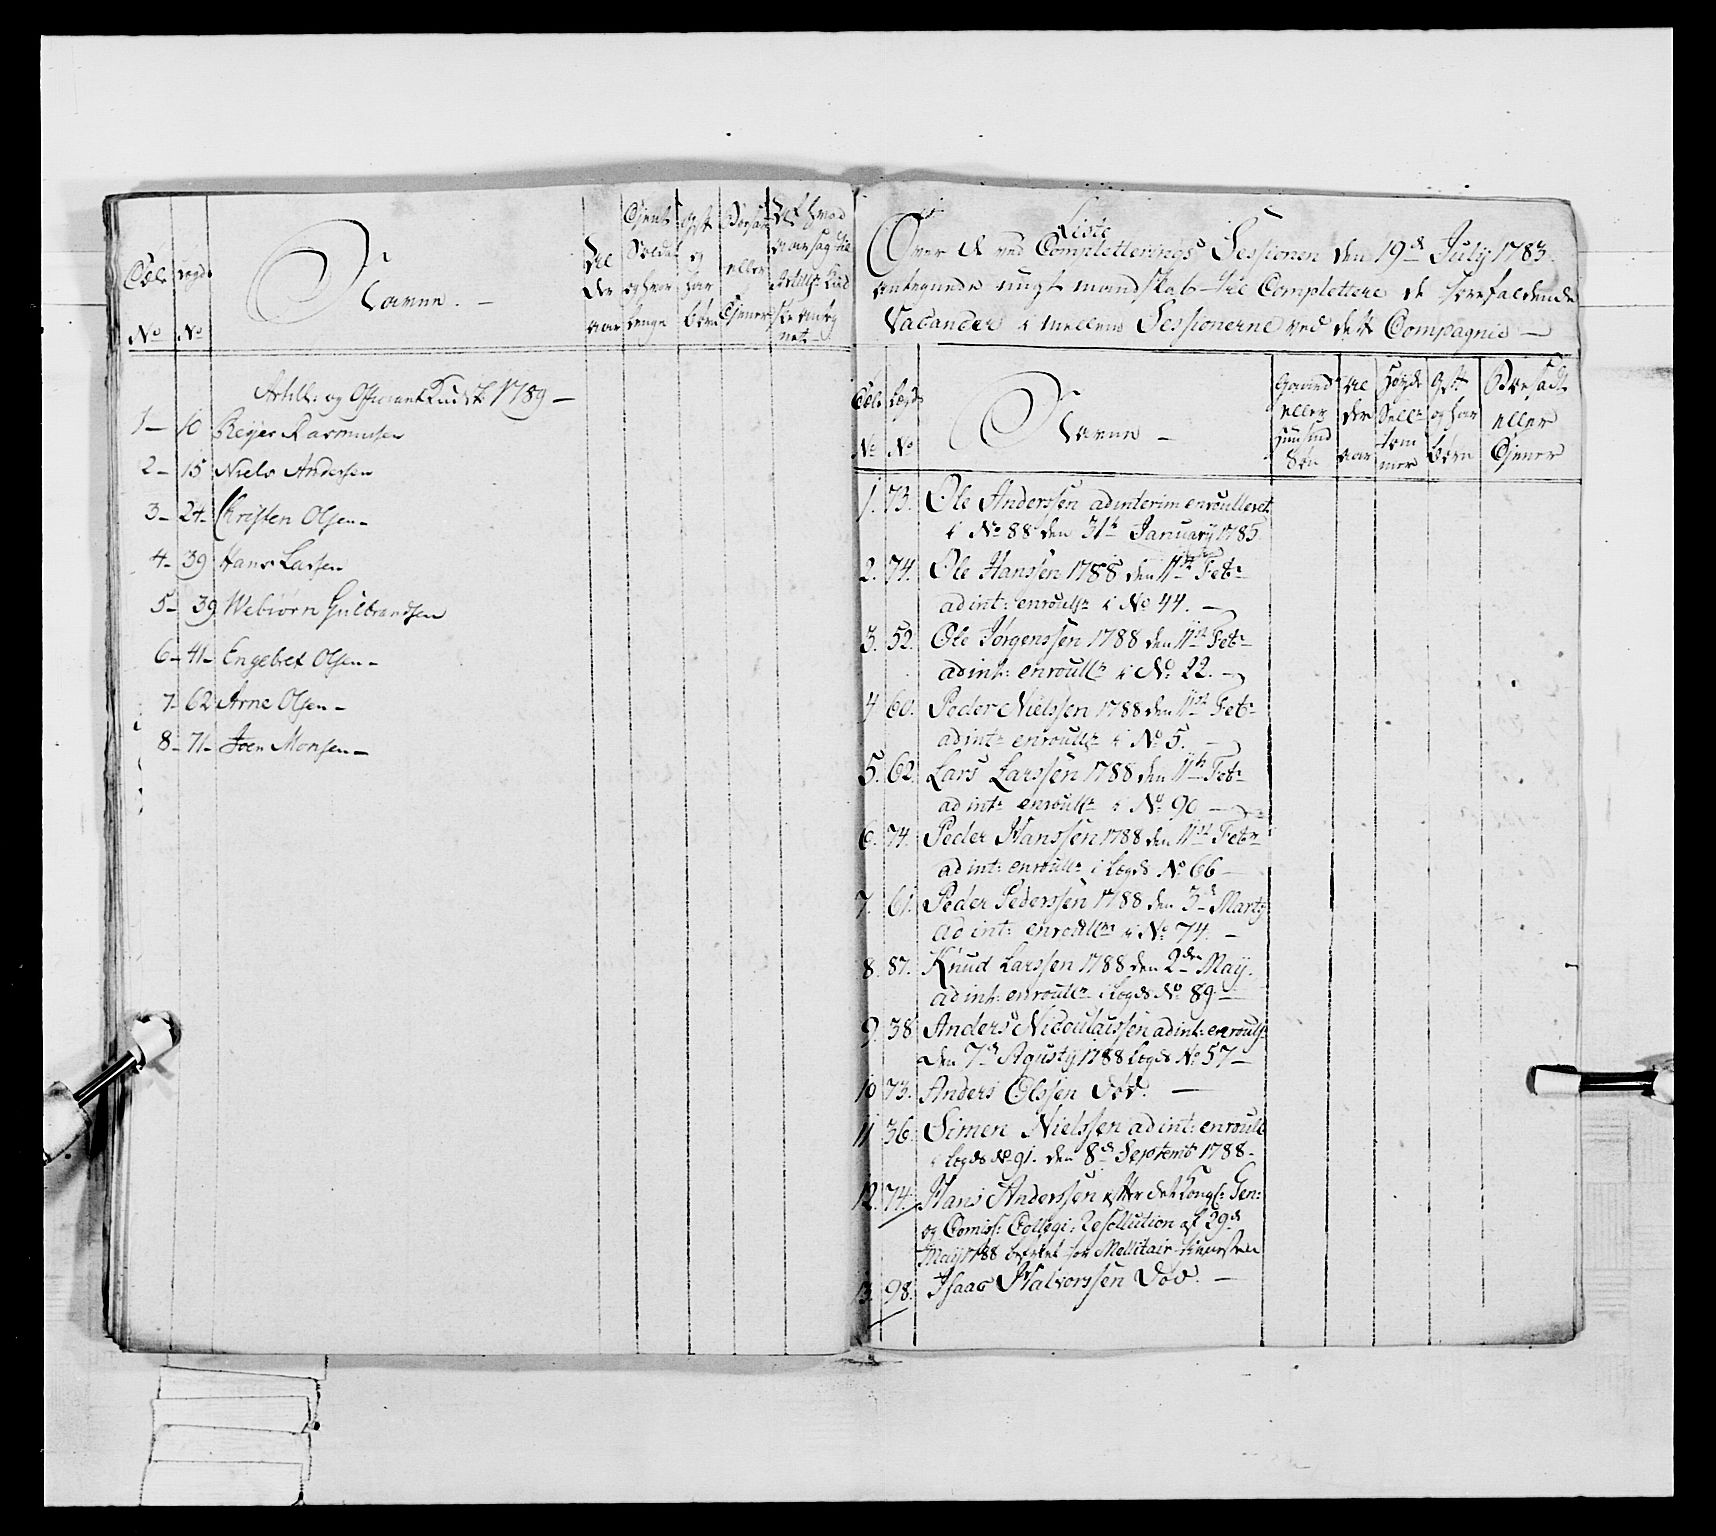 No
No
Navne. —
Al
der
aar
Tient
Soldat
og hvor
lenge
Gift
og
har
børn
Artill: og Officeer Kudske 1789 —
1— 10 Reyer Rasmusen
2— 15 Niels Andersen
3— 24— Christen Olsen—
4— 39 Hans Larsen
5— 39 Webiørn Gulbrandsen
6— 41— Engebret Olsen—
7— 62 Arne Olsen—
8— 71— Joen Monsen—
Liste
Over de ved Completterings Sessionen den 19de July 1783
antegnede ungt mandskab til Complettere de forefaldende
Vacancer i mellem Sessionerne ved dette Compagnie —
No No
Navne —
Al
der
aar
Gift
og har
børn
Bosadt
eller
Tiener
1. 73. Ole Anderssen ad interim enroulleret
i No 88 den 31te January 1785
2. 74. Ole Hanssen 1788 den 11te Febr
ad int: enroullr i No 44. —
3. 52. Ole Jørgenssen 1788 den 11te Febr
ad int: enroullr i No 22. —
4 60. Peder Nielssen 1788 den 11te Febr
ad intr enroullr i No 5. —
5. 62. Lars Larssen 1788 den 11te Febr
ad intr enroullr i No 90 —
6. 74. Peder Hanssen 1788 den 11te Febr
ad int: enroullr i Legds No 66 —
7. 61. Peder Pederssen 1788 den 3de Marty
ad int: enroullr i No 74. —
8. 87. Knud Larssen 1788 den 2den May.
ad int: enroullr i Legds No 89 —
9. 38. Anders Nicoulaissen ad int: enroullr
den 7de Agusty 1788 Legds No 57 —
10 73. Anders Olssen Død. —
11 36. Simen Nielssen ad int: enroull
i Legds No 91. den 8de Septembr 1788—
12. 74. Hans Anderssen efter det Kongl: Gen:
og Comiss: Collegi: Resollution af 29de
May 1788 befriet for Mellitair tienesten
13. 98. Isaac Halvorssen Død. —